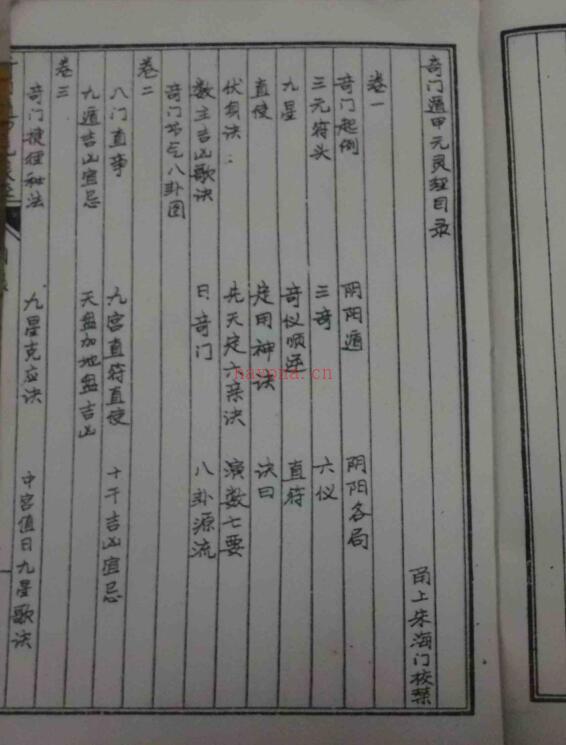 奇门遁甲元灵经目录
甬上朱海门校录
卷一
奇门起例 阴阳遁 阴阳各局
三元符头 三奇 六仪
九星 奇仪顺逆 直符
直使 定用神诀 诀曰
诀: 先天定六亲诀 演数七要
数主吉凶歌诀 日奇门 八卦源流
奇门节气八卦图
卷二
八门直事 九宫直符直使 十干吉凶宜忌
九遁吉凶宜忌 天盘加地盘吉凶
卷三
奇门捷径秘法 九星克应诀 中宫值日九星歌诀
nayona.cn